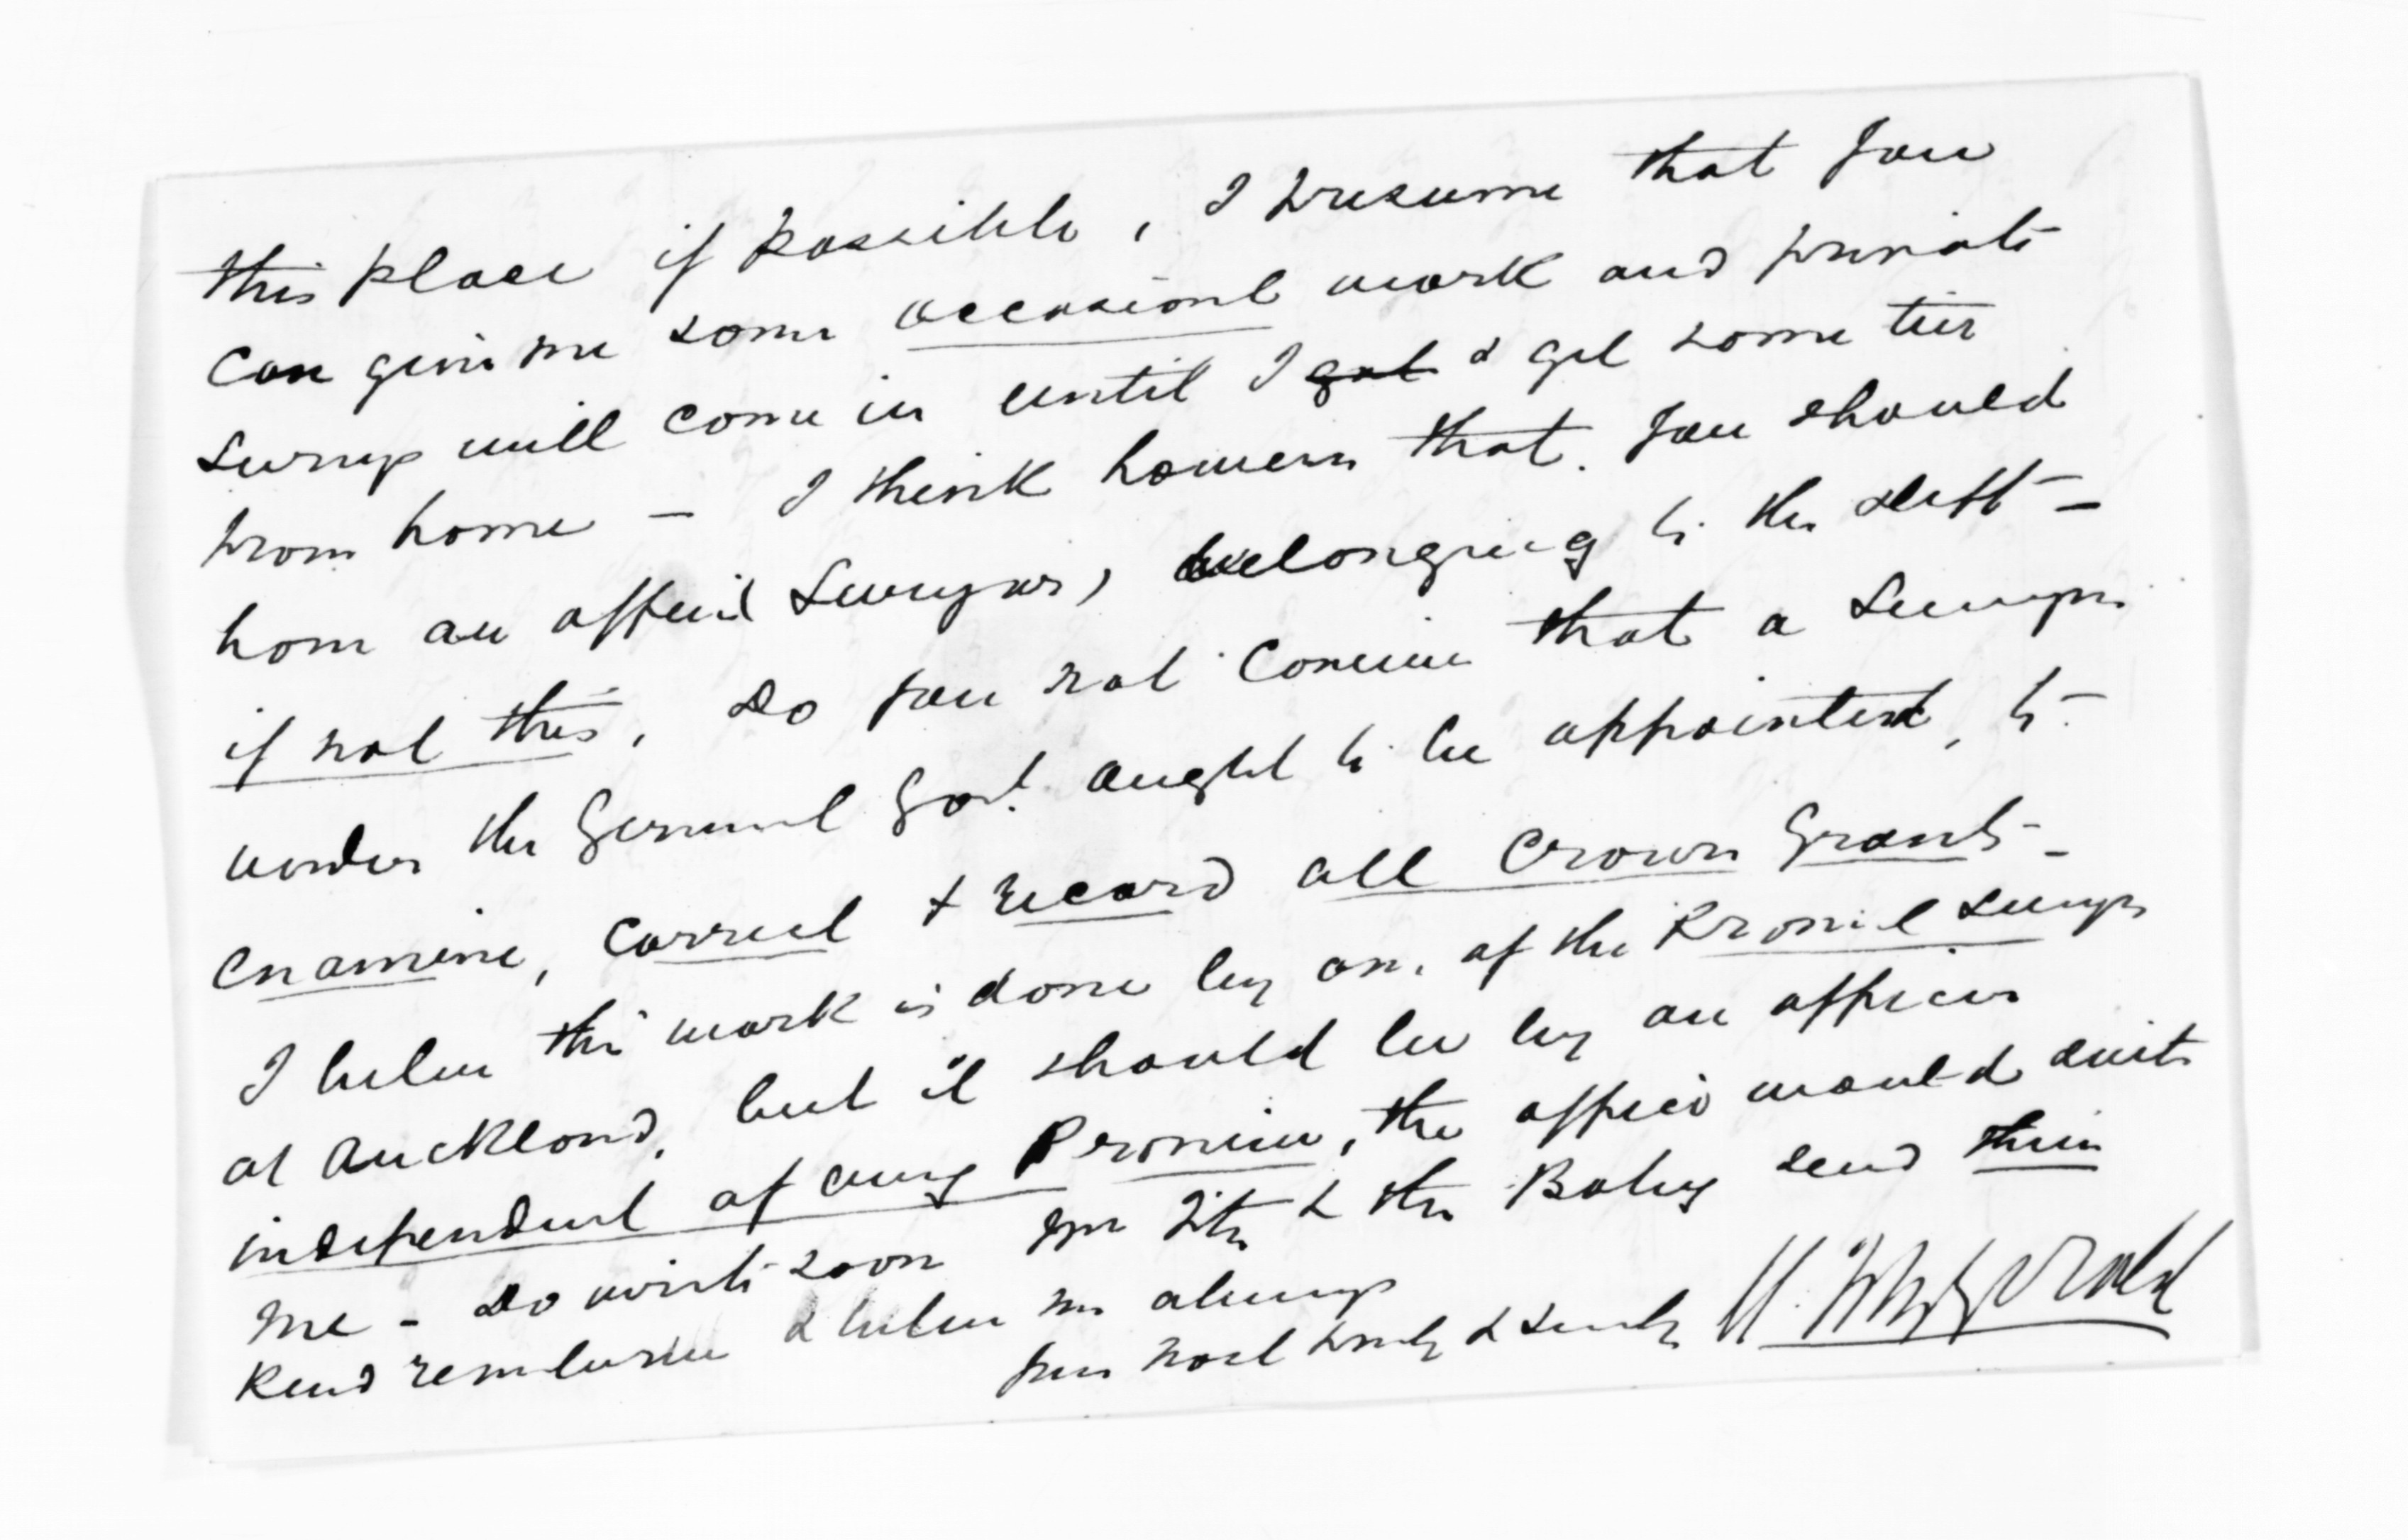 this place if possible, I presume that you
can give me some occasional work and private
survey will come in until I got & get some
from home — I think however that you should
have an office Surveyor, belonging to the Dept —
if not this, do you not conceive that a Surveyor
under the General Govt. ought to be appointed, to
examine, correct & record all Crown Grants —
I believe this work is done by one of the Provincial Surveyors
at Auckland, but it should be by an officer
independent of any Province, the office would suit
me — do write soon & the Baby send their
kind remembrance & believe me always
yours most truly & H. Fitzgerald